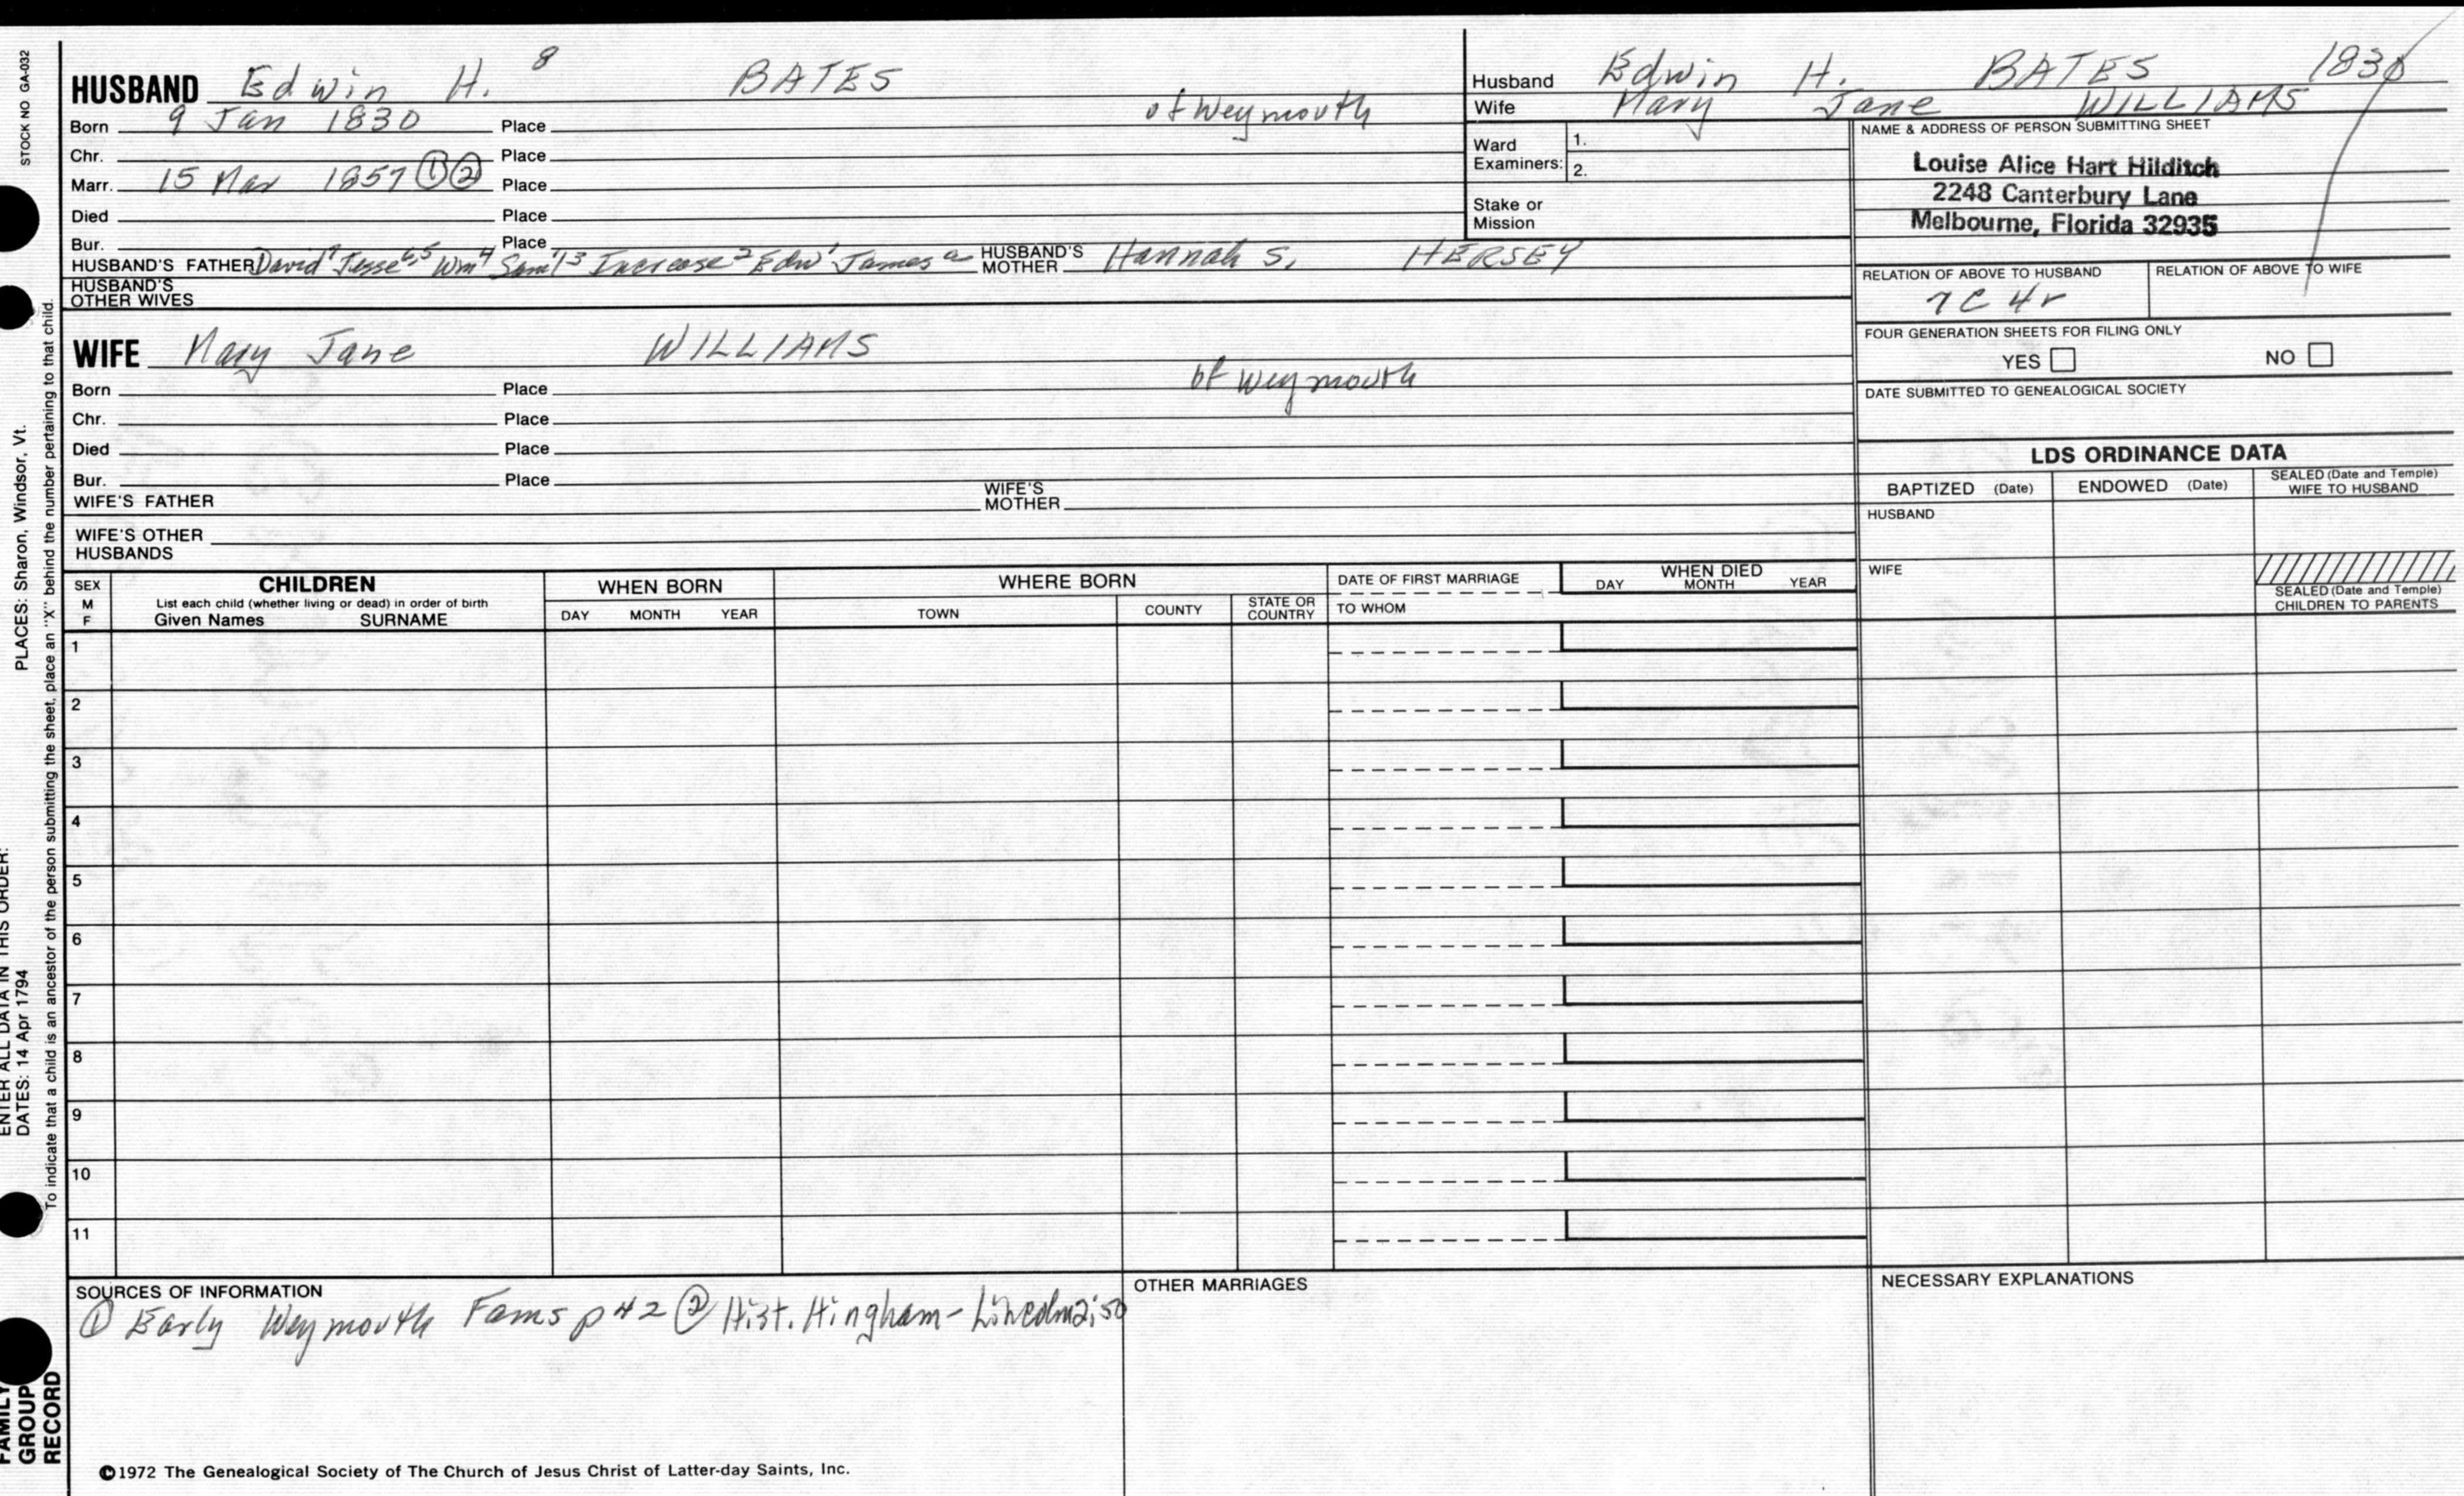 STOCK NO GA-032
PLACES: Sharon, Windsor, Vt.
ENTER ALL DATA IN THIS ORDER:
DATES: 14 Apr 1794
To indicate that a child is an ancestor of the person submitting the sheet, place an "X" behind the number pertaining to that child.
FAMILY GROUP RECORD
HUSBAND Edwin H. 8 BATES
Born 9 Jan 1830 Place of Weymouth
Chr. Place
Marr. 15 Mar 1857 ① ② Place
Died Place
Bur. Place
HUSBAND'S FATHER David 7 Jesse 6,5 Wm 4 Saml 3 Increase 2 Edw 1 James a HUSBAND'S MOTHER Hannah S. HERSEY
HUSBAND'S OTHER WIVES
Husband Edwin H. BATES 1830
Wife Mary Jane WILLIAMS
Ward Examiners: 1.
2.
Stake or Mission
NAME & ADDRESS OF PERSON SUBMITTING SHEET
Louise Alice Hart Hilditch
2248 Canterbury Lane
Melbourne, Florida 32935
RELATION OF ABOVE TO HUSBAND RELATION OF ABOVE TO WIFE
7C 4r
FOUR GENERATION SHEETS FOR FILING ONLY
YES NO
DATE SUBMITTED TO GENEALOGICAL SOCIETY
WIFE Mary Jane WILLIAMS
Born Place of Weymouth
Chr. Place
Died Place
Bur. Place
WIFE'S FATHER WIFE'S MOTHER
WIFE'S OTHER HUSBANDS
LDS ORDINANCE DATA
BAPTIZED (Date) ENDOWED (Date) SEALED (Date and Temple) WIFE TO HUSBAND
HUSBAND
WIFE
SEALED (Date and Temple) CHILDREN TO PARENTS
SEX M F CHILDREN WHEN BORN WHERE BORN DATE OF FIRST MARRIAGE WHEN DIED
List each child (whether living or dead) in order of birth
Given Names SURNAME DAY MONTH YEAR TOWN COUNTY STATE OR COUNTRY TO WHOM DAY MONTH YEAR
1
2
3
4
5
6
7
8
9
10
11
SOURCES OF INFORMATION
① Early Weymouth Fams p 42 ② Hist. Hingham - Lincoln 2:50
OTHER MARRIAGES
NECESSARY EXPLANATIONS
©1972 The Genealogical Society of The Church of Jesus Christ of Latter-day Saints, Inc.